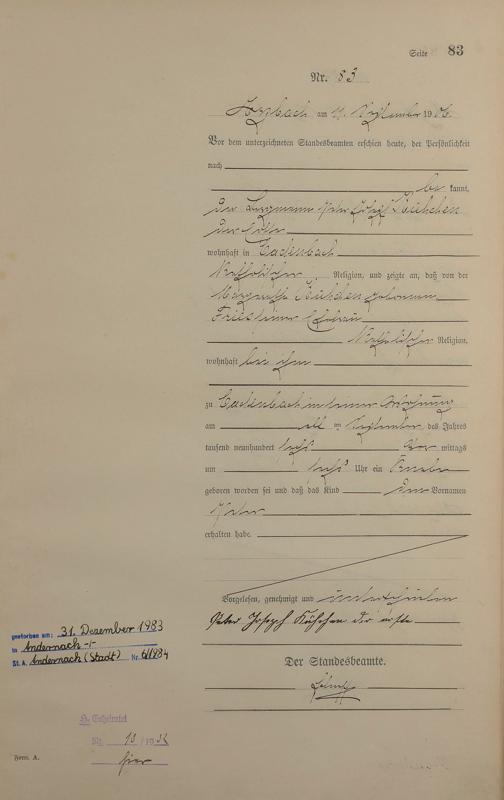 Seite 83
Nr. 83
am 11. September 1906.
Vor dem unterzeichneten Standesbeamten erschien heute, der Persönlichkeit
nach
be kannt,
der Bergmann Peter Josef Kühchen
der
wohnhaft in Cadenbach
Katholischer Religion, und zeigte an, daß von der
Kühchen geborenen
Ehefrau
Katholischer Religion,
wohnhaft bei ihm
zu Cadenbach in seiner Wohnung
am elf ten September des Jahres
tausend neunhundert sechs Vor mittags
um sechs Uhr ein Knabe
geboren worden sei und daß das Kind den Vornamen
Peter
erhalten habe.
Vorgelesen, genehmigt und unterschrieben
Peter Joseph Kühchen der
Der Standesbeamte.
gestorben am: 31. Dezember 1983
in Andernach
St. A. Andernach (Stadt) Nr.
H. Geheiratet
Nr.
hier
Form. A.